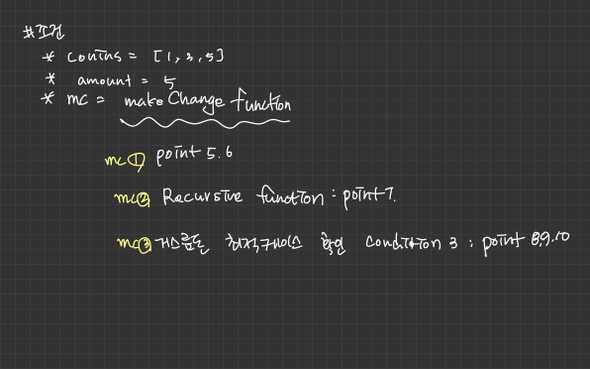 #조건
* couins = [1, 3, 5]
* amount = 5
* mc = makeChange function
mc① point 5.6
mc② Recursive function : point 7.
mc③ 거스름돈 최적케이스 확인 condition 3 : point 8.9.10